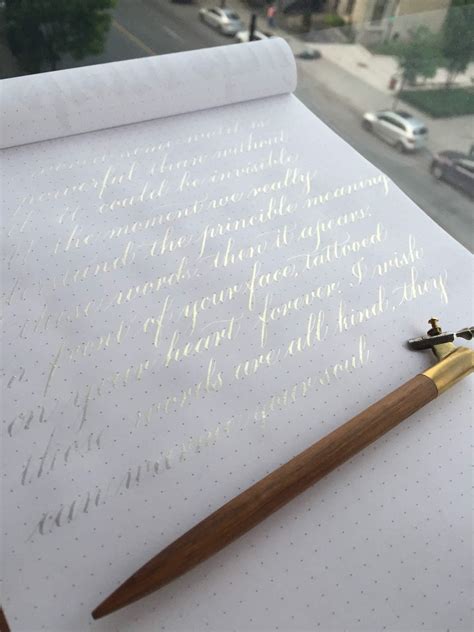 word is
powerful than without
it could be invisible
the moment we really
the principle meaning
those words, then it apears,
in front of your face, tattooed
on your heart forever. I wish
those words are all kind, they
can warm your soul